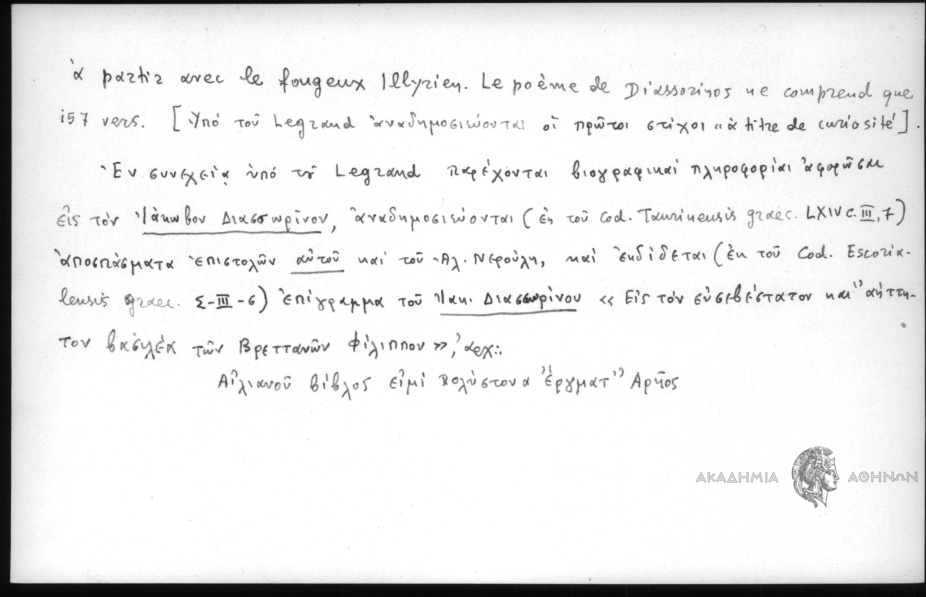 à partir avec le fougeux Illyrien. Le poème de Diassorinos ne comprend que
157 vers. [Ὑπὸ τοῦ Legrand ἀναδημοσιεύονται οἱ πρῶτοι στίχοι «à titre de curiosité].
Ἐν συνεχείᾳ ὑπὸ τοῦ Legrand παρέχονται βιογραφικαὶ πληροφορίαι ἀφορῶσαι
εἰς τὸν Ἰάκωβον Διασσωρῖνον, ἀναδημοσιεύονται (ἐκ τοῦ Cod. Taurinensis graec. LXIV c. III, 7)
ἀποσπάσματα ἐπιστολῶν αὐτοῦ καὶ τοῦ Ἀλ. Νερούλη, καὶ ἐκδίδεται (ἐκ τοῦ Cod. Escoria-
lensis graec. Σ-III-6) ἐπίγραμμα τοῦ Ἰακ. Διασσωρίνου «Εἰς τὸν εὐσεβέστατον καὶ ἀήττη-
τον βασιλέα τῶν Βρεττανῶν Φίλιππον», ἀρχ.:
Αἰλιανοῦ βίβλος εἰμὶ πολύστονα ἔργματ' Ἄρηος
ΑΚΑΔΗΜΙΑ ΑΘΗΝΩΝ